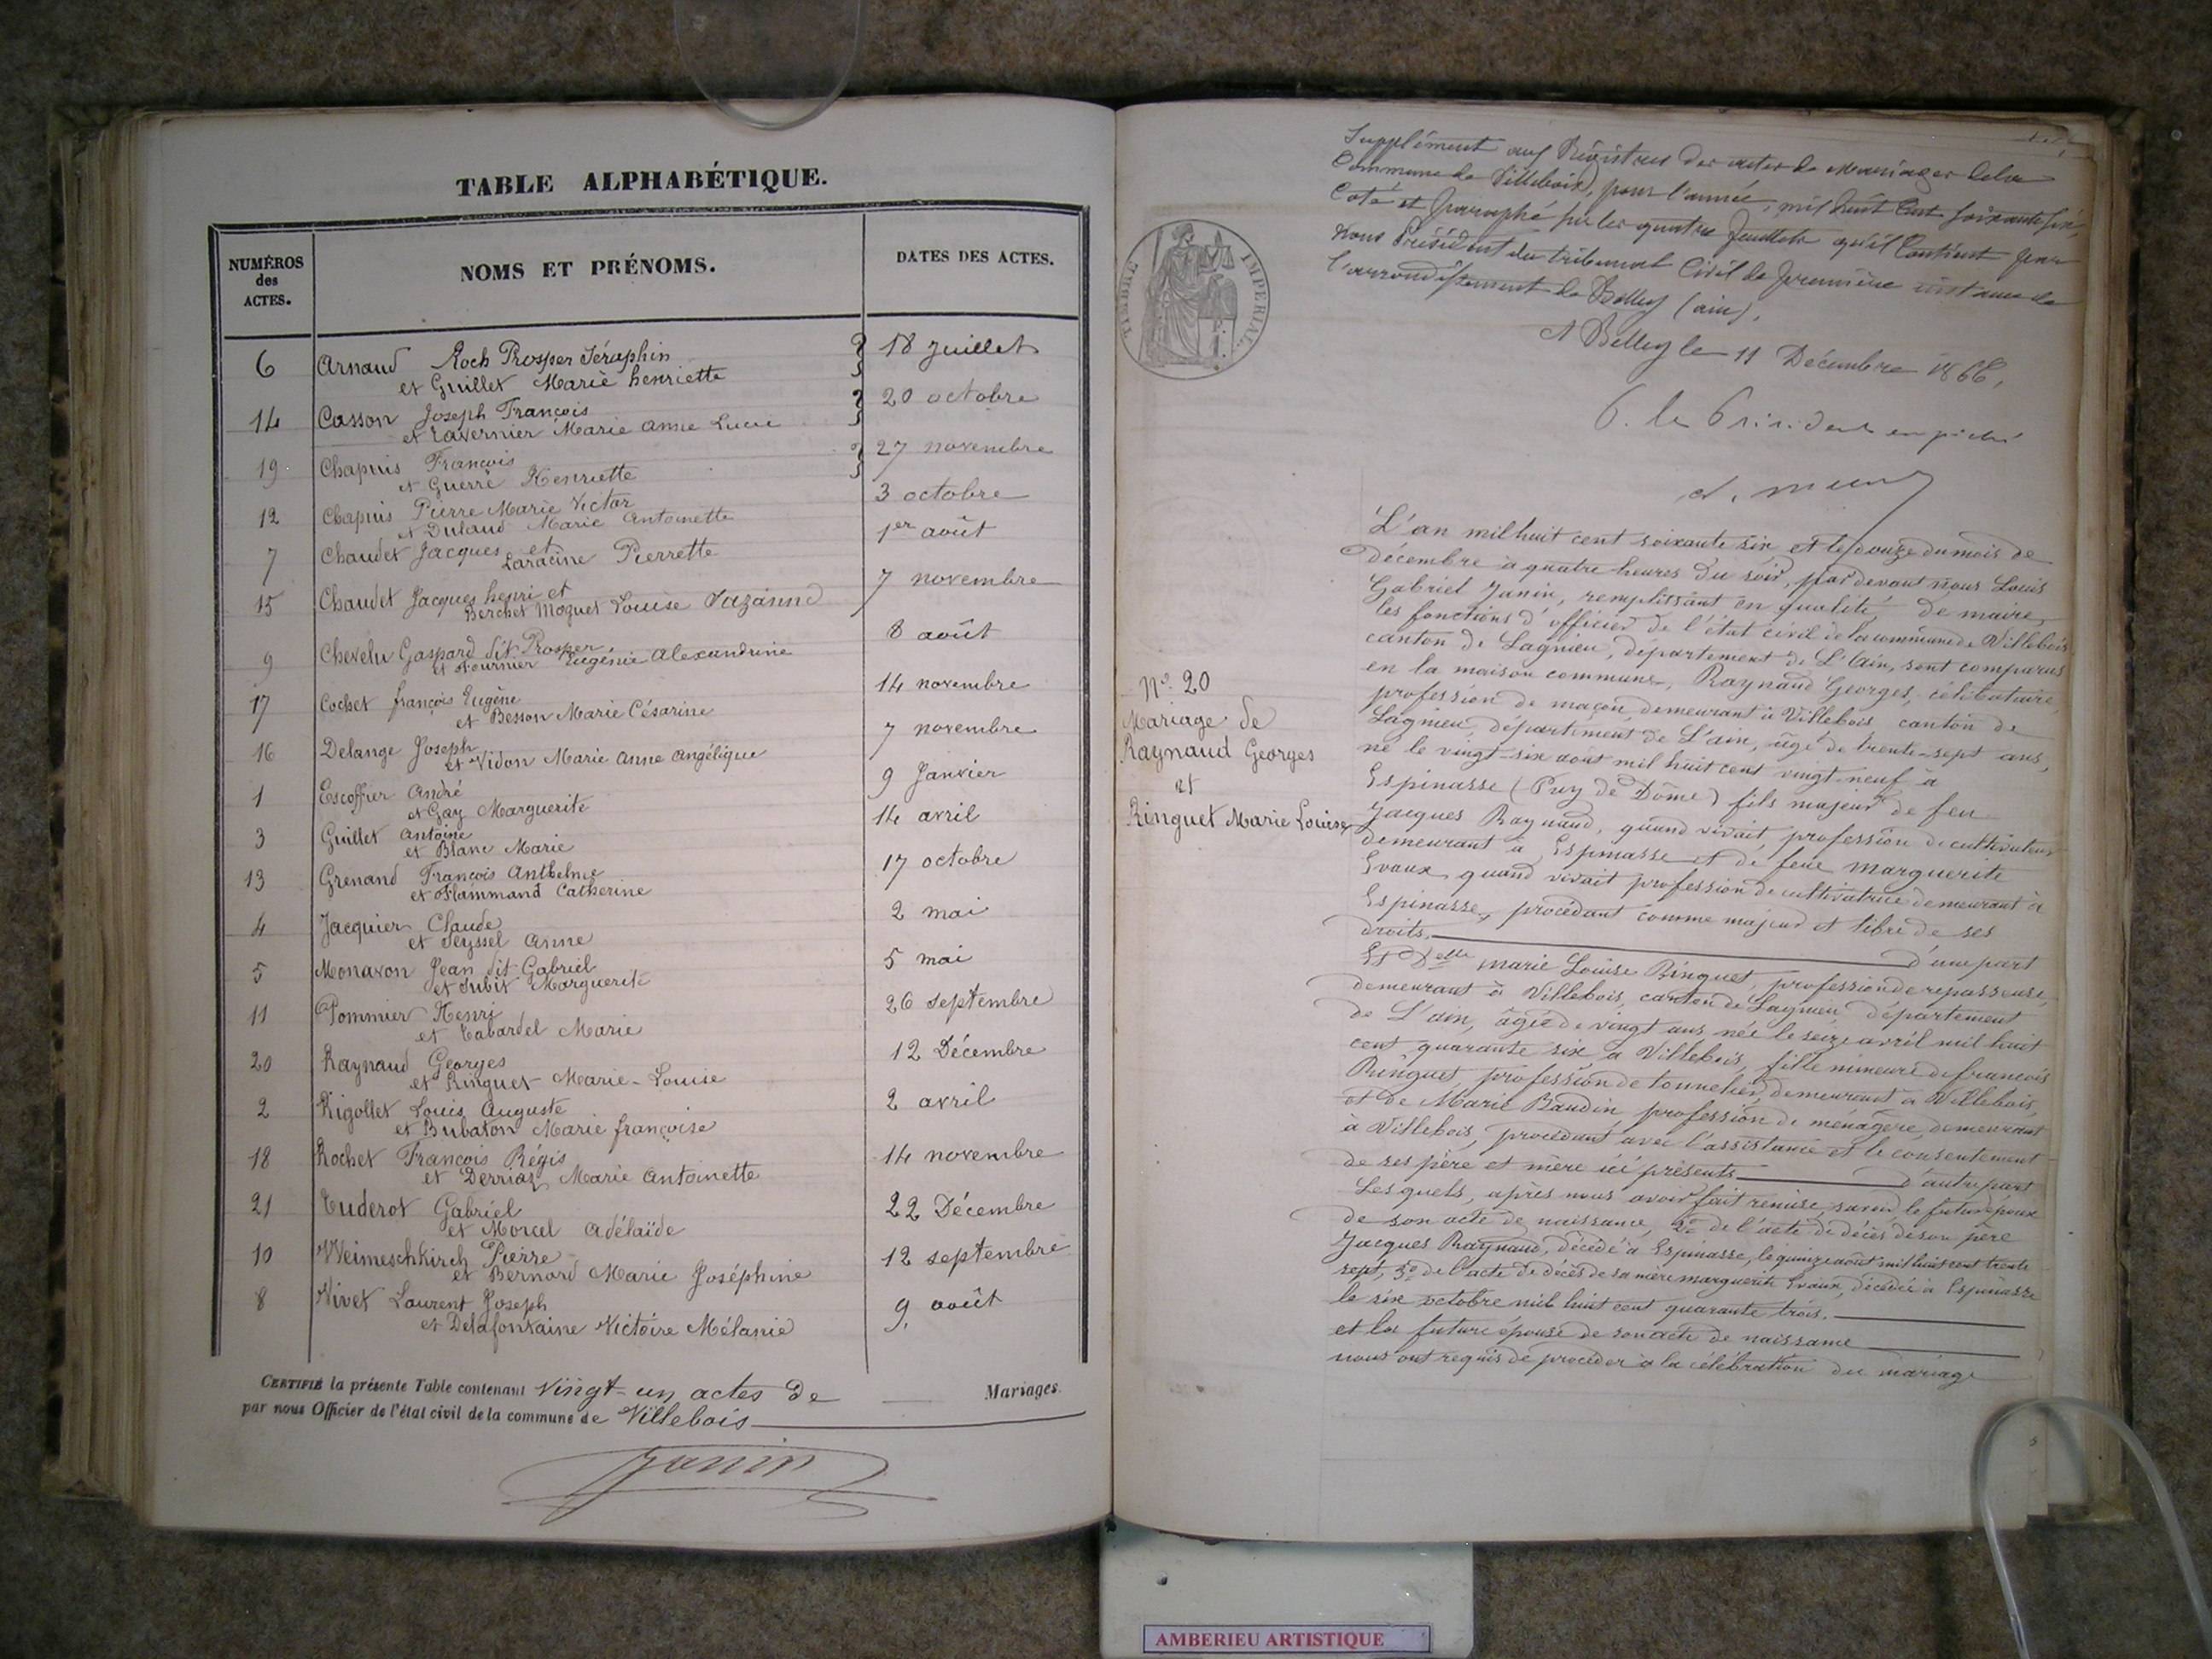 TABLE ALPHABÉTIQUE.
NUMÉROS des ACTES.
NOMS ET PRÉNOMS.
DATES DES ACTES.
6 Arnaud Roch Prosper Séraphin 18 Juillet
et Guillet Marie henriette
14 Casson Joseph François 20 octobre
et Tavernier Marie Anne Lucie
19 Chapuis François 27 novembre
et Guerre Henriette
12 Chapuis Pierre Marie Victor 3 octobre
et Dulaud Marie Antoinette
7 Chaudet Jacques et 1er août
Laracine Pierrette
15 Chaudet Jacques henri et 7 novembre
Berchet Moguet Louise Suzanne
9 Chevelu Gaspard dit Prosper 8 août
et Fournier Eugénie Alexandrine
17 Cochet françois Eugène 14 novembre
et Besson Marie Césarine
16 Delange Joseph 7 novembre
et Vidon Marie Anne Angélique
1 Escoffier André 9 Janvier
et Gay Marguerite
3 Guillet Antoine 14 avril
et Blanc Marie
13 Grenand François Anthelme 17 octobre
et Flammand Catherine
4 Jacquier Claude 2 mai
et Seyssel Anne
5 Monavon Jean dit Gabriel 5 mai
et Subit Marguerite
11 Pommier Henri 26 septembre
et Tabardel Marie
20 Raynaud Georges 12 Décembre
et Ringuet Marie-Louise
2 Rigollet Louis Auguste 2 avril
et Bubaton Marie françoise
18 Rochet François Régis 14 novembre
et Derriaz Marie Antoinette
21 Tuderot Gabriel 22 Décembre
et Morcel Adélaïde
10 Weimeschkirch Pierre 12 septembre
et Bernard Marie Joséphine
8 Vivet Laurent Joseph 9. août
et Delafontaine Victoire Mélanie
CERTIFIÉ la présente Table contenant Vingt-un actes de Mariages.
par nous Officier de l'état civil de la commune de Villebois
Janin
TIMBRE IMPÉRIAL
Supplément aux Régistres des actes de Mariages de la
Commune de Villebois, pour l'année, mil huit Cent soixante six,
Coté et paraphé sur les quatre feuillets qu'il Contient par
Nous Président du tribunal Civil de première instance de
l'arrondissement de Belley (ain).
A Belley le 11 Décembre 1866,
P. le Président empêché
N° 20
Mariage de
Raynaud Georges
et
Ringuet Marie Louise
L'an mil huit cent soixante six et le douze du mois de
décembre à quatre heures du soir, pardevant nous Louis
Gabriel Janin, remplissant en qualité de maire,
les fonctions d'officier de l'état civil de la commune de Villebois
canton de Lagnieu, département de L'Ain, sont comparus
en la maison commune, Raynaud Georges, célibataire,
profession de maçon, demeurant à Villebois canton de
Lagnieu, département de L'ain, âgé de trente-sept ans,
né le vingt-six août mil huit cent vingt-neuf à
Espinasse (Puy de Dôme) fils majeur de feu
Jacques Raynaud, quand vivait profession de cultivateur
demeurant à Espinasse et de feue Marguerite
Evaux quand vivait profession de cultivatrice demeurant à
Espinasse, procédant comme majeur et libre de ses
droits. d'une part
Et Delle marie Louise Ringuet, profession de repasseuse,
demeurant à Villebois, canton de Lagnieu, département
de L'ain, âgée de vingt ans née le seize avril mil huit
cent quarante six à Villebois, fille mineure de françois
Ringuet profession de tonnelier, demeurant à Villebois,
et de Marie Baudin profession de ménagère, demeurant
à Villebois, procédant avec l'assistance et le consentement
de ses père et mère ici présents d'autre part
Lesquels, après nous avoir fait remise, savoir le futur époux
de son acte de naissance, 2° de l'acte de décès de son père
Jacques Raynaud, décédé à Espinasse, le quinze août mil huit cent trente
sept, 3° de l'acte de décès de sa mère marguerite Evaux, décédée à Espinasse
le six octobre mil huit cent quarante trois.
et la future épouse de son acte de naissance
nous ont requis de procéder à la célébration du mariage
AMBERIEU ARTISTIQUE